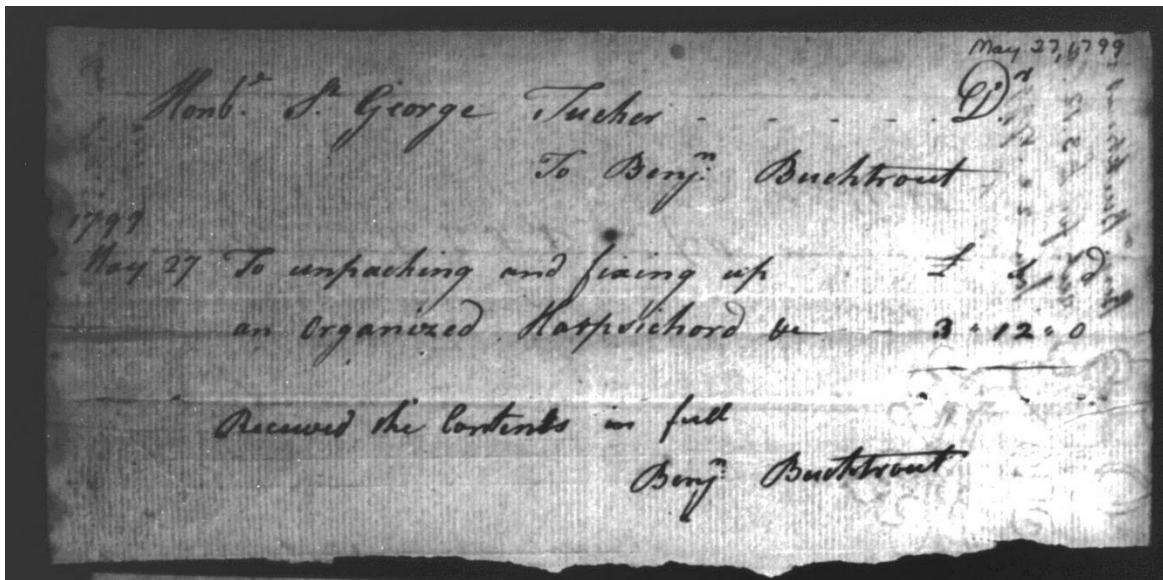 May 27, 1799
Honb.d St. George Tucker - - - - - D.r
To Benj.n Bucktrout
1799
May 27 To unpacking and fixing up £ s d
an Organized Harpsichord &c 3 " 12 " 0
Received the Contents in full
Benj.n Bucktrout